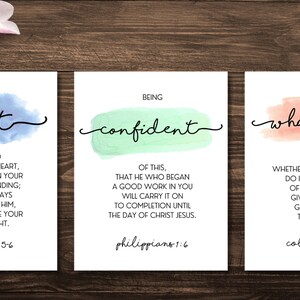 EART,
N YOUR
NDING;
AYS
HIM,
E YOUR
HT.
5-6
BEING
confident
OF THIS,
THAT HE WHO BEGAN
A GOOD WORK IN YOU
WILL CARRY IT ON
TO COMPLETION UNTIL
THE DAY OF CHRIST JESUS.
philippians 1:6
wha
WHETHE
DO I
OF
GIV
G
T
col